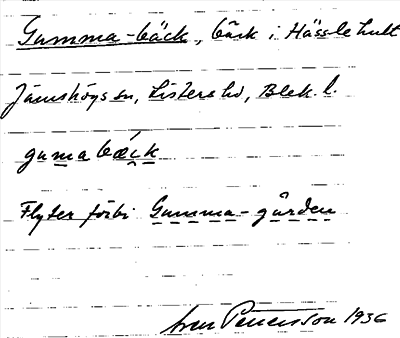 Gumma-bäck, bäck i Hässlehult
Jämshögs sn, Listers hd, Blek. l.
gumabæ̀ck
Flyter förbi Gumma-gården
Sven Petersson 1936